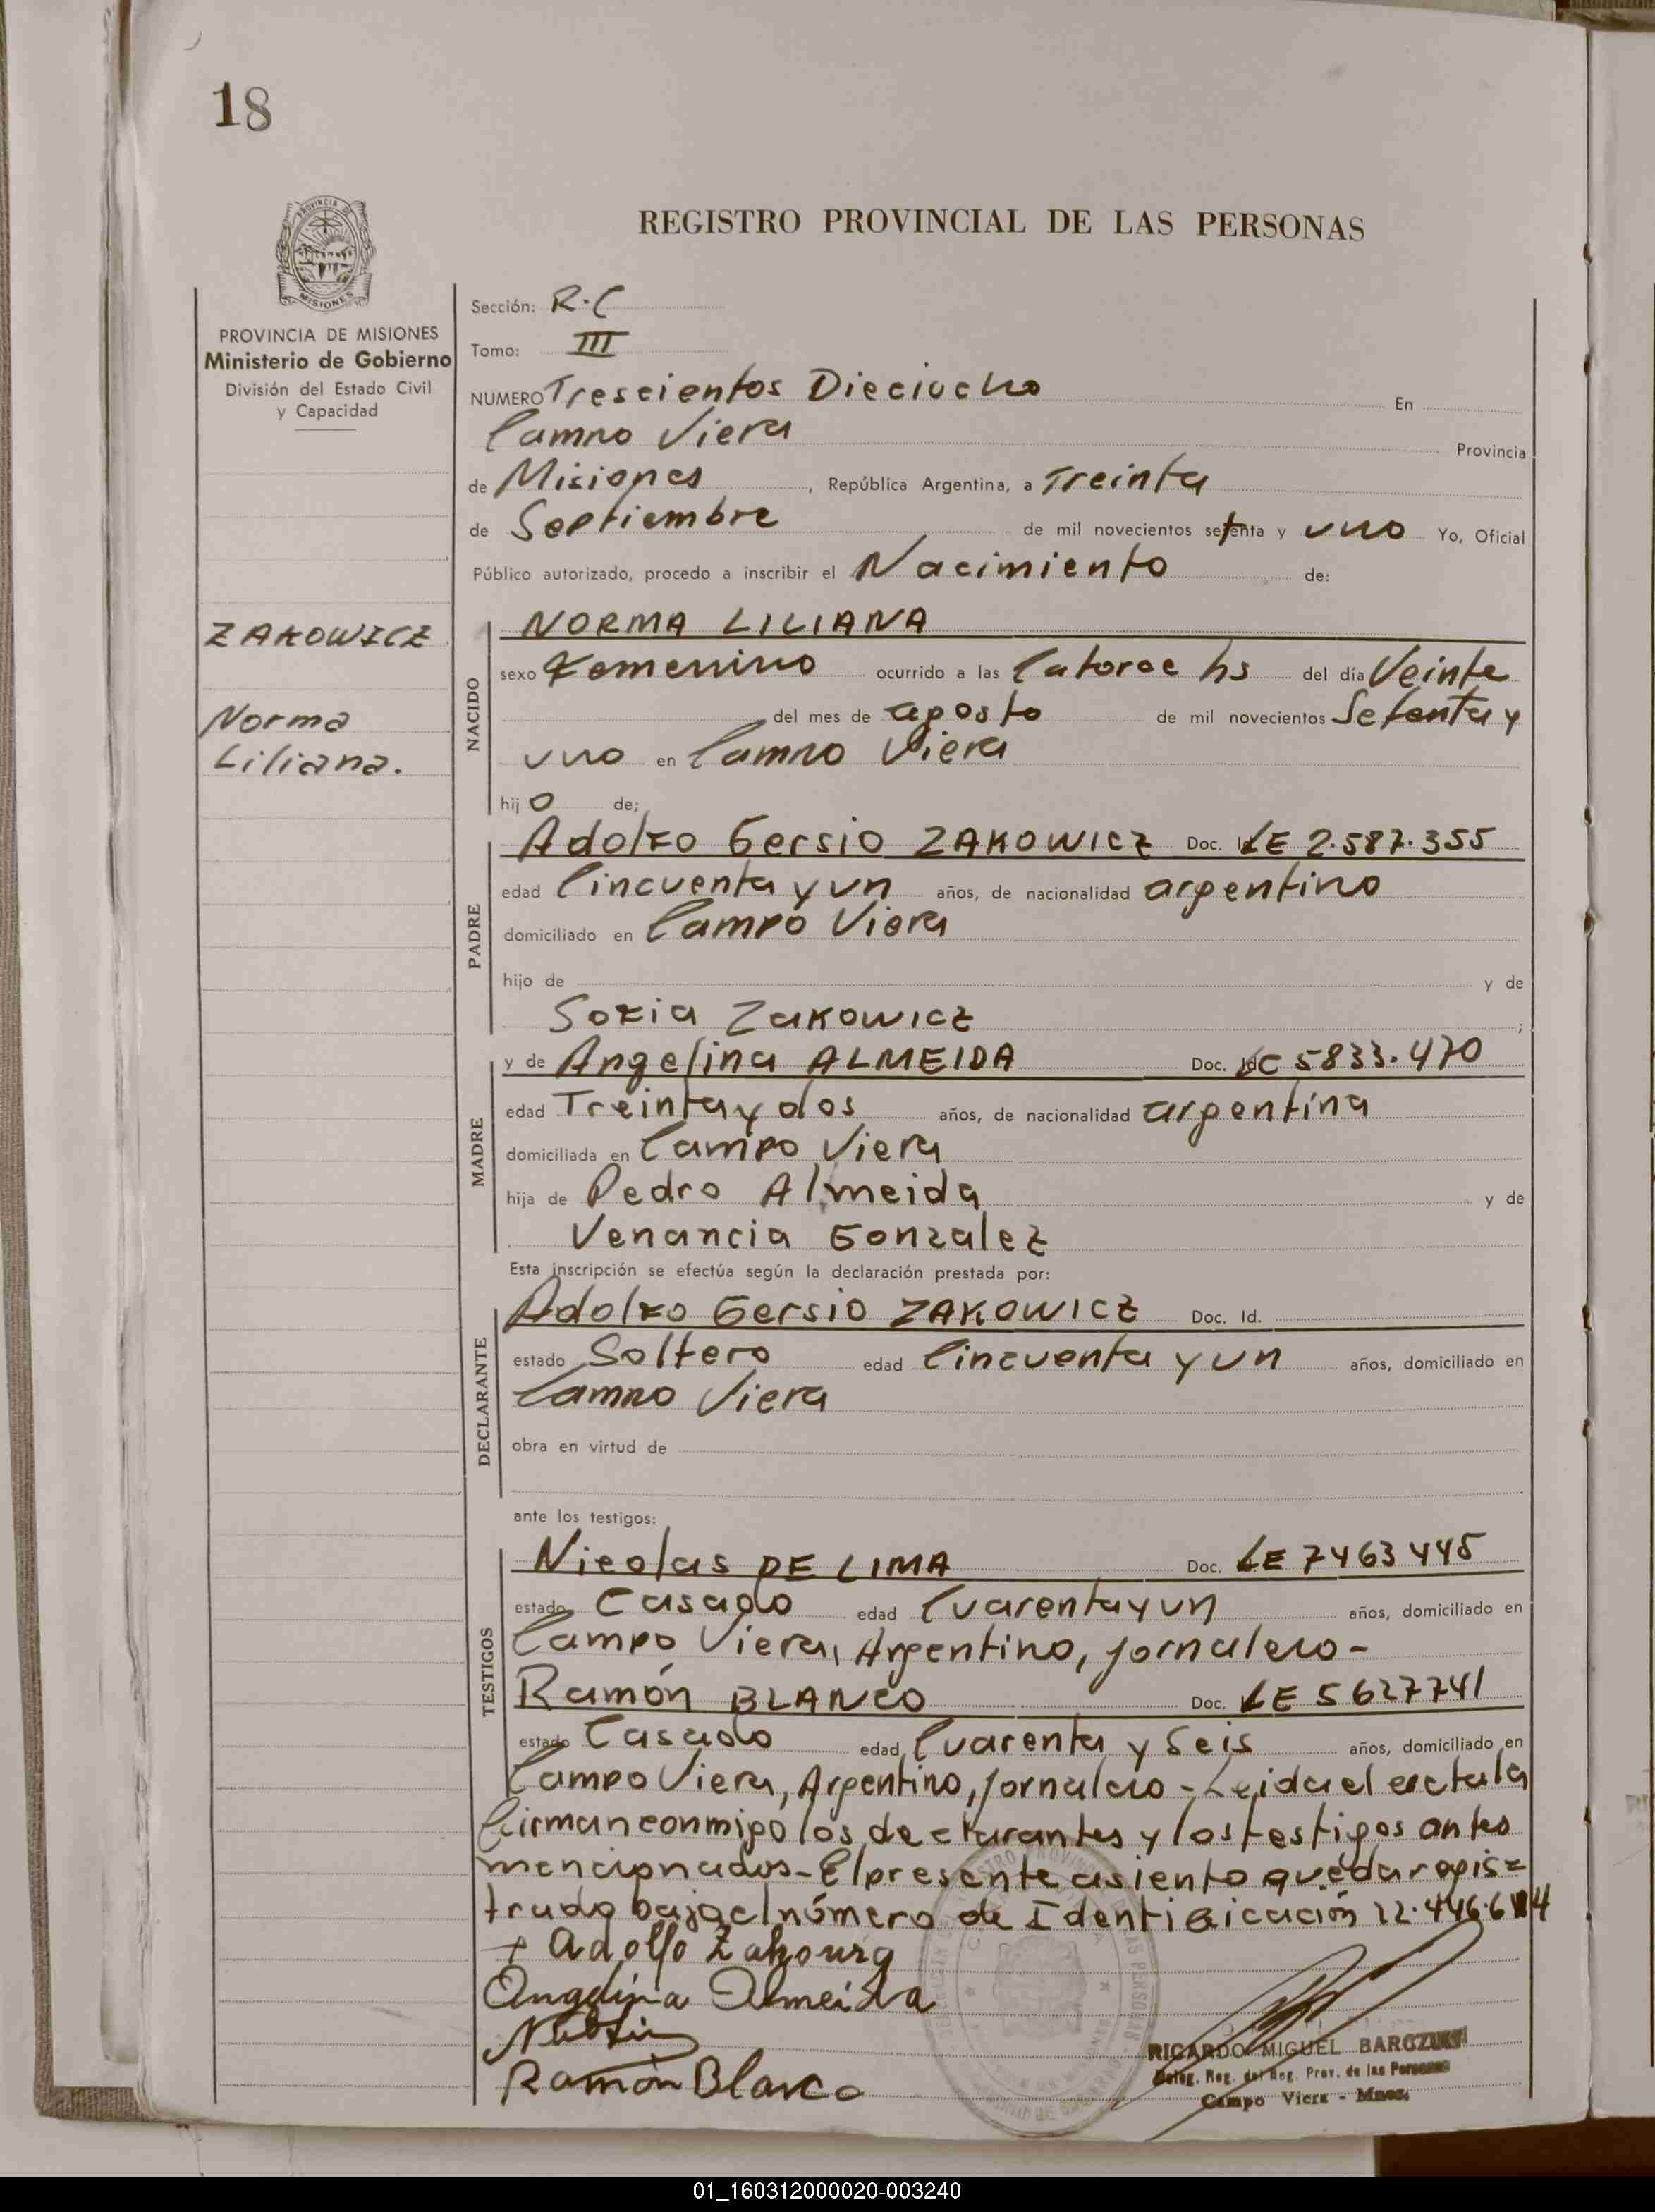 18
REGISTRO PROVINCIAL DE LAS PERSONAS
PROVINCIA DE MISIONES
Ministerio de Gobierno
División del Estado Civil
y Capacidad
ZAKOWICZ
Norma
Liliana.
Sección: R.C
Tomo: III
NUMERO Trescientos Dieciocho En
Campo Viera Provincia
de Misiones, República Argentina, a Treinta
de Septiembre de mil novecientos setenta y uno Yo, Oficial
Público autorizado, procedo a inscribir el Nacimiento de:
NACIDO
NORMA LILIANA
sexo Femenino ocurrido a las Catorce hs del día Veinte
del mes de agosto de mil novecientos Setenta y
uno en Campo Viera
hijo de;
PADRE
Adolfo Gersio ZAKOWICZ Doc. LE 2.587.355
edad Cincuenta y un años, de nacionalidad argentino
domiciliado en Campo Viera
hijo de y de
Sofia Zakowicz ;
MADRE
y de Angelina ALMEIDA Doc. LC 5833.470
edad Treinta y dos años, de nacionalidad argentina
domiciliada en Campo Viera
hija de Pedro Almeida y de
Venancia Gonzalez
Esta inscripción se efectúa según la declaración prestada por:
DECLARANTE
Adolfo Gersio ZAKOWICZ Doc. Id.
estado Soltero edad Cincuenta y un años, domiciliado en
Campo Viera
obra en virtud de
ante los testigos:
TESTIGOS
Nicolas DE LIMA Doc. LE 7463445
estado Casado edad Cuarenta y un años, domiciliado en
Campo Viera, Argentino, jornalero-
Ramón BLANCO Doc. LE 5627741
estado Casado edad Cuarenta y Seis años, domiciliado en
Campo Viera, Argentino, jornalero - Leida el acta la
firman conmigo los declarantes y los testigos antes
mencionados - El presente asiento queda regis=
trado bajo el número de Identificación 22.446.6
Adolfo
Angelina Almeida
Ramón Blanco
RICARDO MIGUEL
Deleg. Reg. del Reg. Prov. de las Personas
Campo Viera - Mnes.
01_160312000020-003240